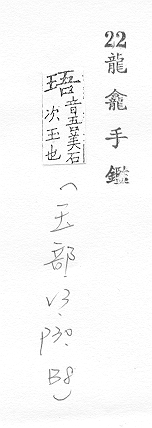 22龍龕手鑑
珸音吾美石
次玉也
(玉部.V3.P30.B8)